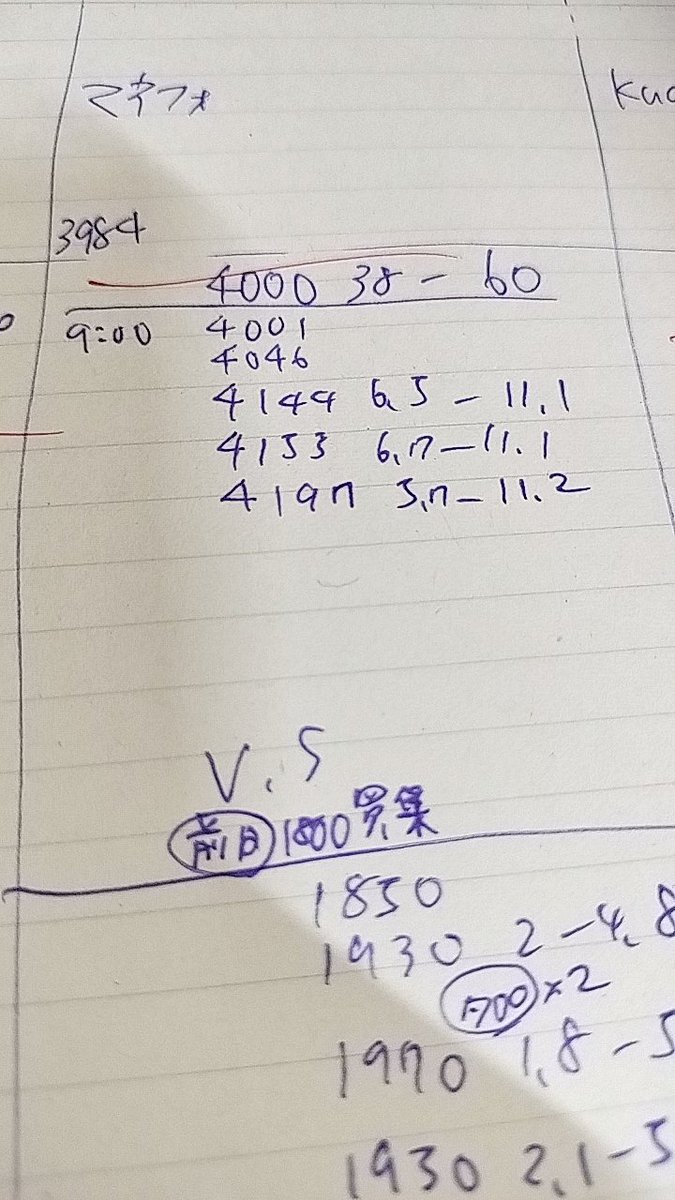 マネフォ
Kuc
3984
4000 38 - 60
9:00 4001
4046
4144 6.5 - 11.1
4153 6.7 - 11.1
4197 5.7 - 11.2
V.S
前日 1800 買集
1850
1930 2 - 4.8
1700 × 2
1970 1.8 - 5
1930 2.1 - 5